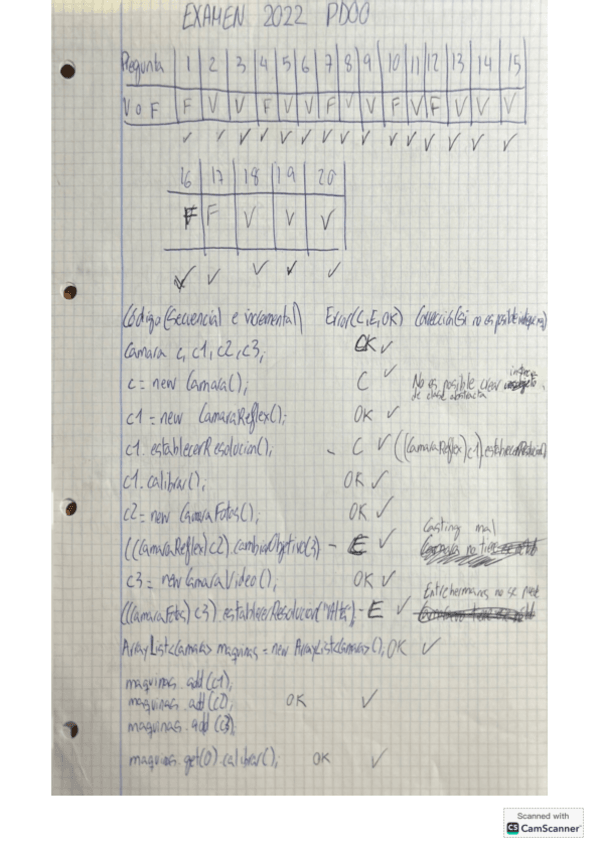 EXAMEN 2022 PDOO
Pregunta 1 2 3 4 5 6 7 8 9 10 11 12 13 14 15
V o F F V V F V V F V V F V F V V V
16 17 18 19 20
F F V V V
Código (secuencial e incremental) Error (C,E,OK) Corrección (si no es posible
Camara c, c1, c2, c3; OK
c = new Camara(); C No es posible crear
de clase abstracta
c1 = new CamaraReflex(); OK
c1.establecerResolucion(); - C ((CamaraReflex)c1).establecerResolucion()
c1.calibrar(); OK
c2 = new CamaraFotos(); OK
Casting mal
((CamaraReflex)c2).cambiarObjetivo(3) - E
c3 = new CamaraVideo(); OK
Entre hermanos no se
((CamaraFotos)c3).establecerResolucion("Alta") - E
ArrayList<Camara> maquinas = new ArrayList<Camara>(); OK
maquinas.add(c1);
maquinas.add(c2); OK
maquinas.add(c3)
maquinas.get(0).calibrar(); OK
Scanned with
CS CamScanner